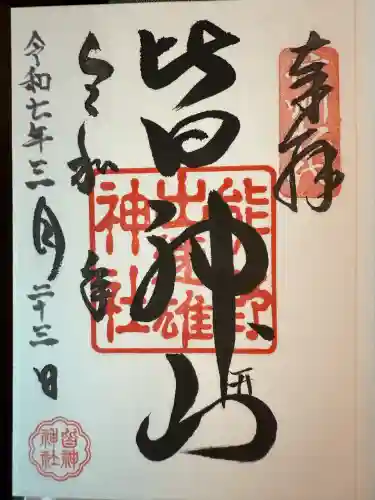 奉拝
皆神山
熊野
出速雄
神社
令和七年三月二十三日
皆神
神社